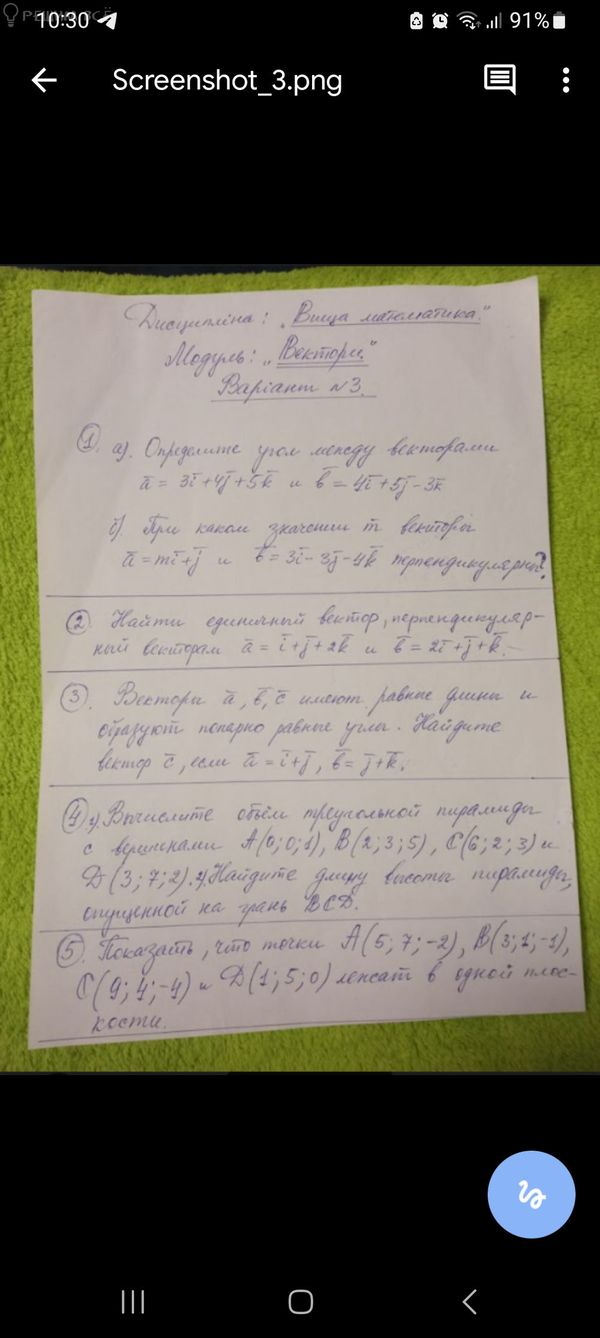 РЕШИМ ВСЁ
10:30
91%
Screenshot_3.png
Дисципліна: „Вища математика."
Модуль: „Вектори."
Варіант №3.
1. а). Определите угол между векторами
a̅ = 3i̅+4j̅+5k̅ и b̅ = 4i̅+5j̅-3k̅
б). При каком значении m векторы
a̅ = mi̅+j̅ и b̅ = 3i̅-3j̅-4k̅ перпендикулярны?
2. Найти единичный вектор, перпендикуляр-
ный векторам a̅ = i̅+j̅+2k̅ и b̅ = 2i̅+j̅+k̅.
3. Векторы a̅, b̅, c̅ имеют равные длины и
образуют попарно равные углы. Найдите
вектор c̅, если a̅ = i̅+j̅, b̅ = j̅+k̅.
4. 1). Вычислите объём треугольной пирамиды
с вершинами A(0;0;1), B(2;3;5), C(6;2;3) и
D(3;7;2). 2). Найдите длину высоты пирамиды,
опущенной на грань BCD.
5. Показать, что точки A(5;7;-2), B(3;1;-1),
C(9;4;-4) и D(1;5;0) лежат в одной плос-
кости.